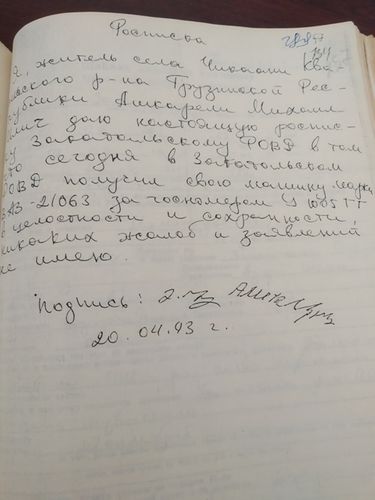 Расписка
Я, житель села Чикаани Ква-
льского р-на Грузинской Рес-
публики Ашкарели Михаил
даю настоящую распис-
ку Закатальскому РОВД в том
что сегодня в Закатальском
РОВД получил свою машину марки
ВАЗ-21063 за госномером
в целостности и сохранности,
никаких жалоб и заявлений
не имею.
Подпись:
20.04.93 г.